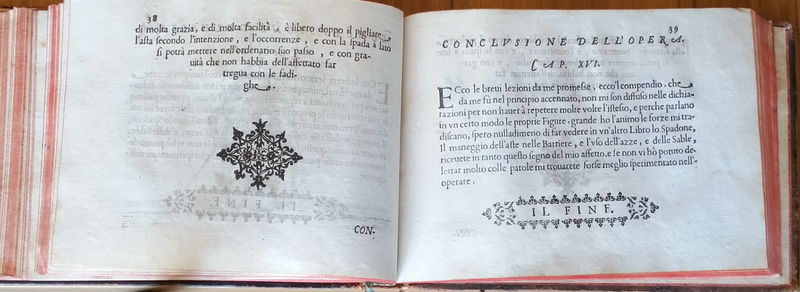 38
di molta grazia, e di molta facilità, è libero doppo il pigliare
l'asta secondo l'intenzione, e l'occorrenze, e con la spada à lato
si potrà mettere nell'ordenario suo passo, e con gra-
uità che non habbia dell'affettato far
tregua con le fadi-
ghe.
CON-
39
CONCLVSIONE DELL'OPERA.
CAP. XVI.
ECco le breui lezioni da me promesse, ecco'l compendio, che
da me fù nel principio accennato, non mi son diffuso nelle dichia-
razioni per non hauer à repetere molte volte l'istesso, e perche parlano
in vn certo modo le proprie Figure, grande hò l'animo le forze mi tra-
discano, spero nulladimeno di far vedere in vn'altro Libro lo Spadone,
Il maneggio dell'aste nelle Barriere, e l'vso dell'azze, e delle Sable,
riceuete in tanto questo segno del mio affetto, e se non vi hò potuto de-
lettar molto colle parole mi trouarete forse meglio sperimentato nell'-
operare.
IL FINE.